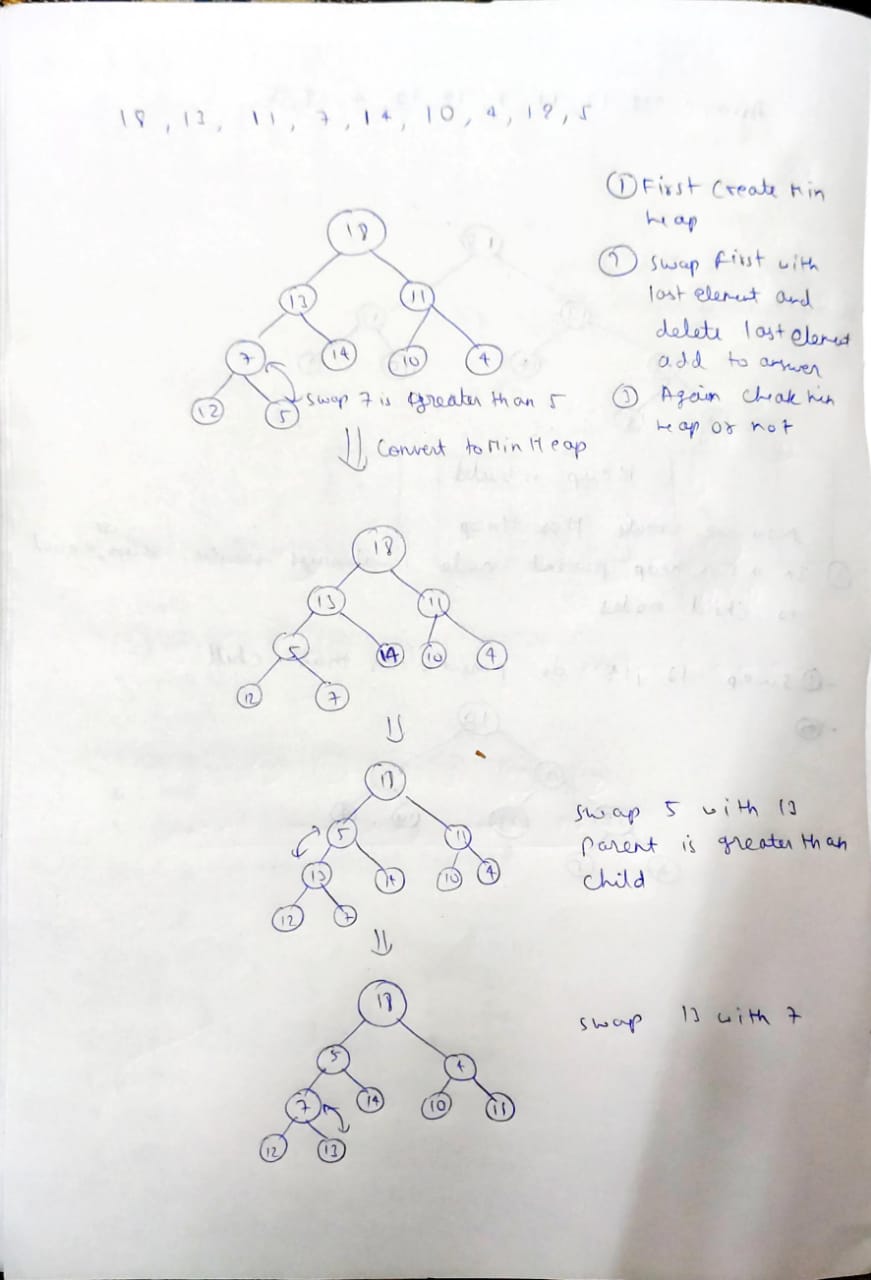 18, 13, 11, 7, 14, 10, 4, 12, 5
① First Create Min
Heap
② swap first with
last element and
delete last element
add to answer
③ Again cheak min
heap or not
18
13 11
7 14 10 4
12 5
swap 7 is greater than 5
Convert to Min Heap
18
13 11
5 14 10 4
12 7
18
5 11
13 14 10 4
12 7
swap 5 with 13
parent is greater than
child
18
5 4
7 14 10 11
12 13
swap 13 with 7